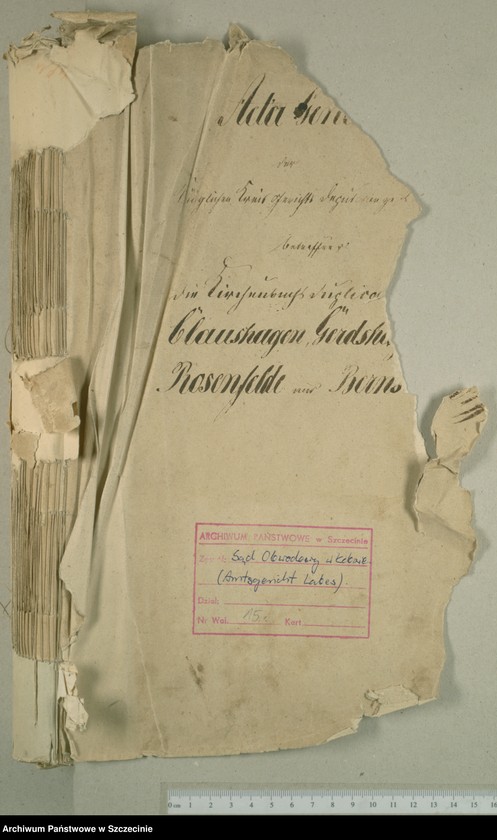 Acta Gen
der
Königlichen Kreis Gerichts Deputation
betreffend
die Kirchenbuchs Duplica
Claushagen, Gerdsh
Rosenfelde und Berns
ARCHIWUM PAŃSTWOWE w Szczecinie
Zespół: Sąd Obwodowy w Łobzie
(Amtsgericht Labes)
Dział:
Nr Wol. 15. Kart
0 cm 1 2 3 4 5 6 7 8 9 10 11 12 13 14 15 16
Archiwum Państwowe w Szczecinie